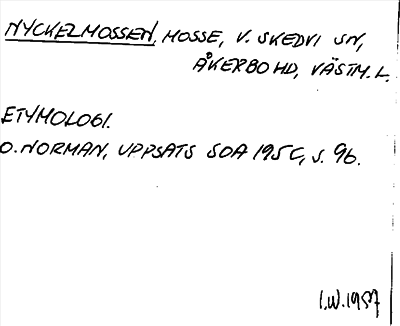 NYCKELMOSSEN, MOSSE, V. SKEDVI SN,
ÅKERBO HD, VÄSTM. L.
ETYMOLOGI.
O. NORMAN, UPPSATS SOA 195C, S. 96.
I.W. 1957